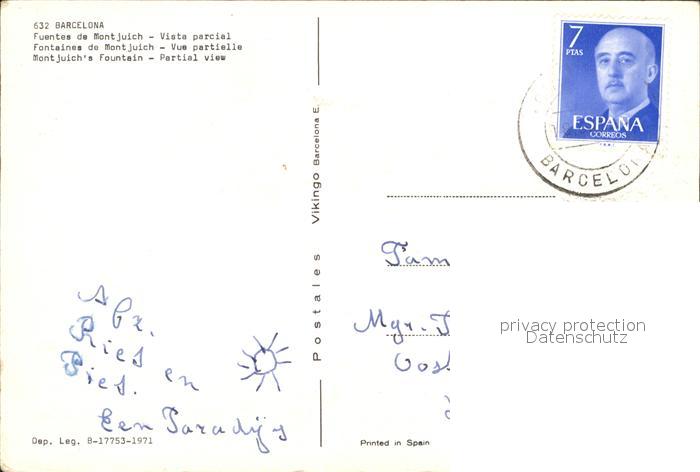 632 BARCELONA
Fuentes de Montjuich - Vista parcial
Fontaines de Montjuich - Vue partielle
Montjuich's Fountain - Partial view
7
PTAS
ESPAÑA
CORREOS
BARCELONA
Postales Vikingo Barcelona E.
Fam
Mgr. 
Oost
privacy protection
Datenschutz
Afz.
Ries
Pies. en
Een Paradijs
Dep. Leg. B-17753-1971
Printed in Spain